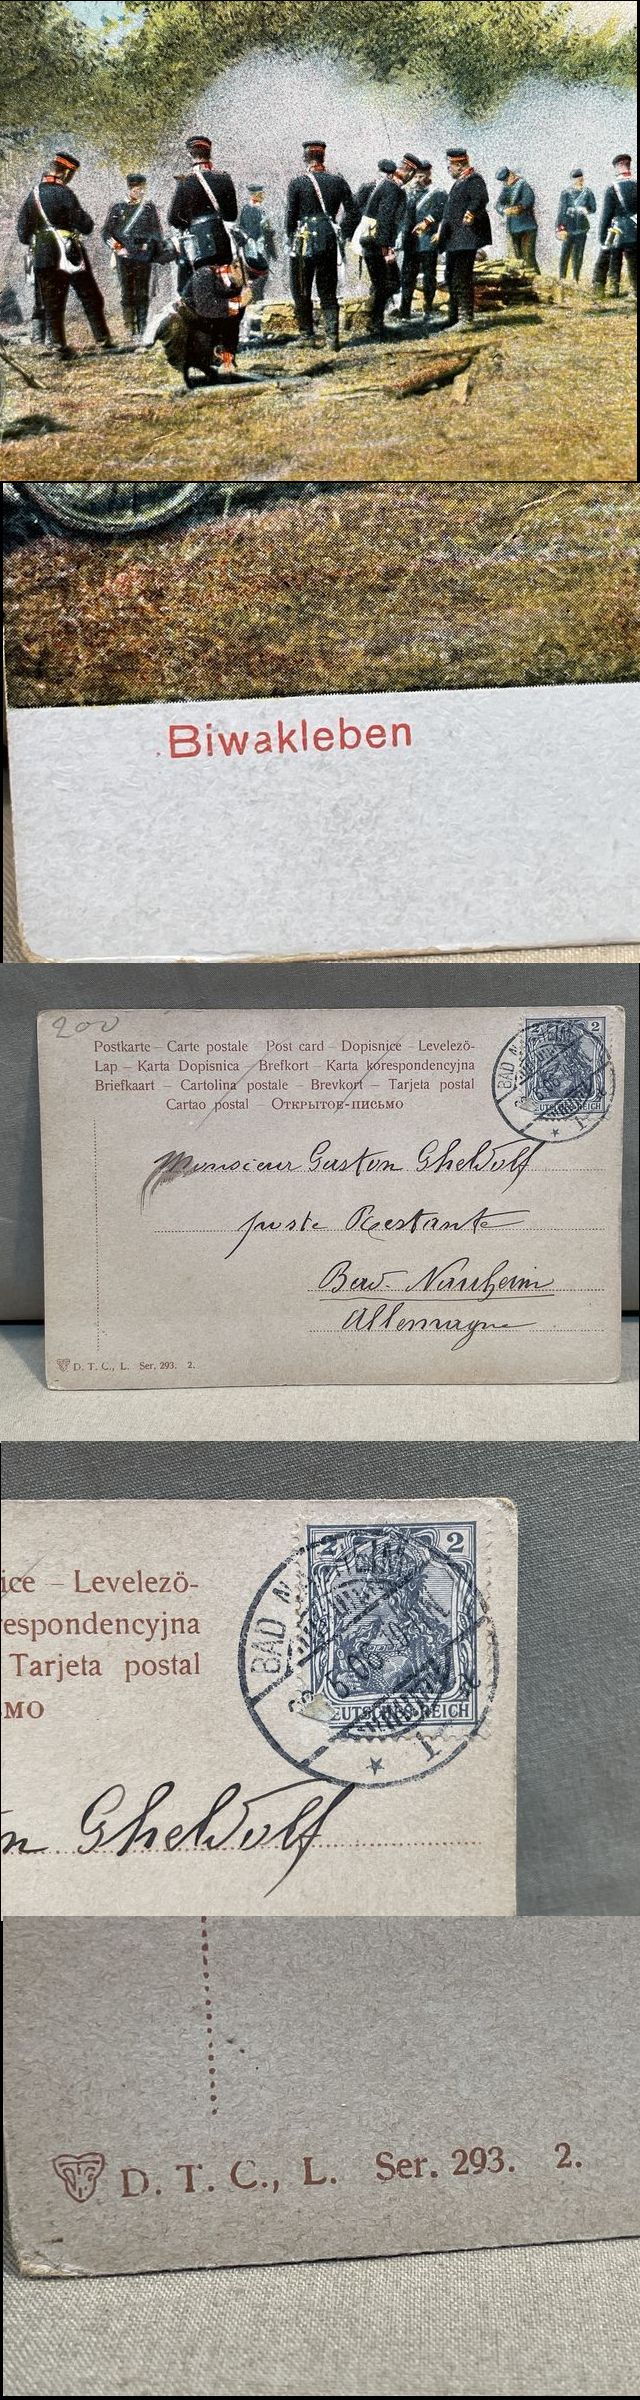 Biwakleben
200
Postkarte – Carte postale Post card – Dopisnice – Levelező-
Lap – Karta Dopisnica – Brefkort – Karta korespondencyjna
Briefkaart – Cartolina postale – Brevkort – Tarjeta postal
Cartao postal – Открытое-письмо
2 2
BAD N
DEUTSCHES REICH
1
Monsieur Gaston Gheldolf
poste Restante
Bad. Nauheim
Allemagne
D. T. C., L. Ser. 293. 2.
ice – Levelező-
respondencyjna
Tarjeta postal
мо
2 2
BAD N
5.06
DEUTSCHES REICH
1
n Gheldolf
D. T. C., L. Ser. 293. 2.